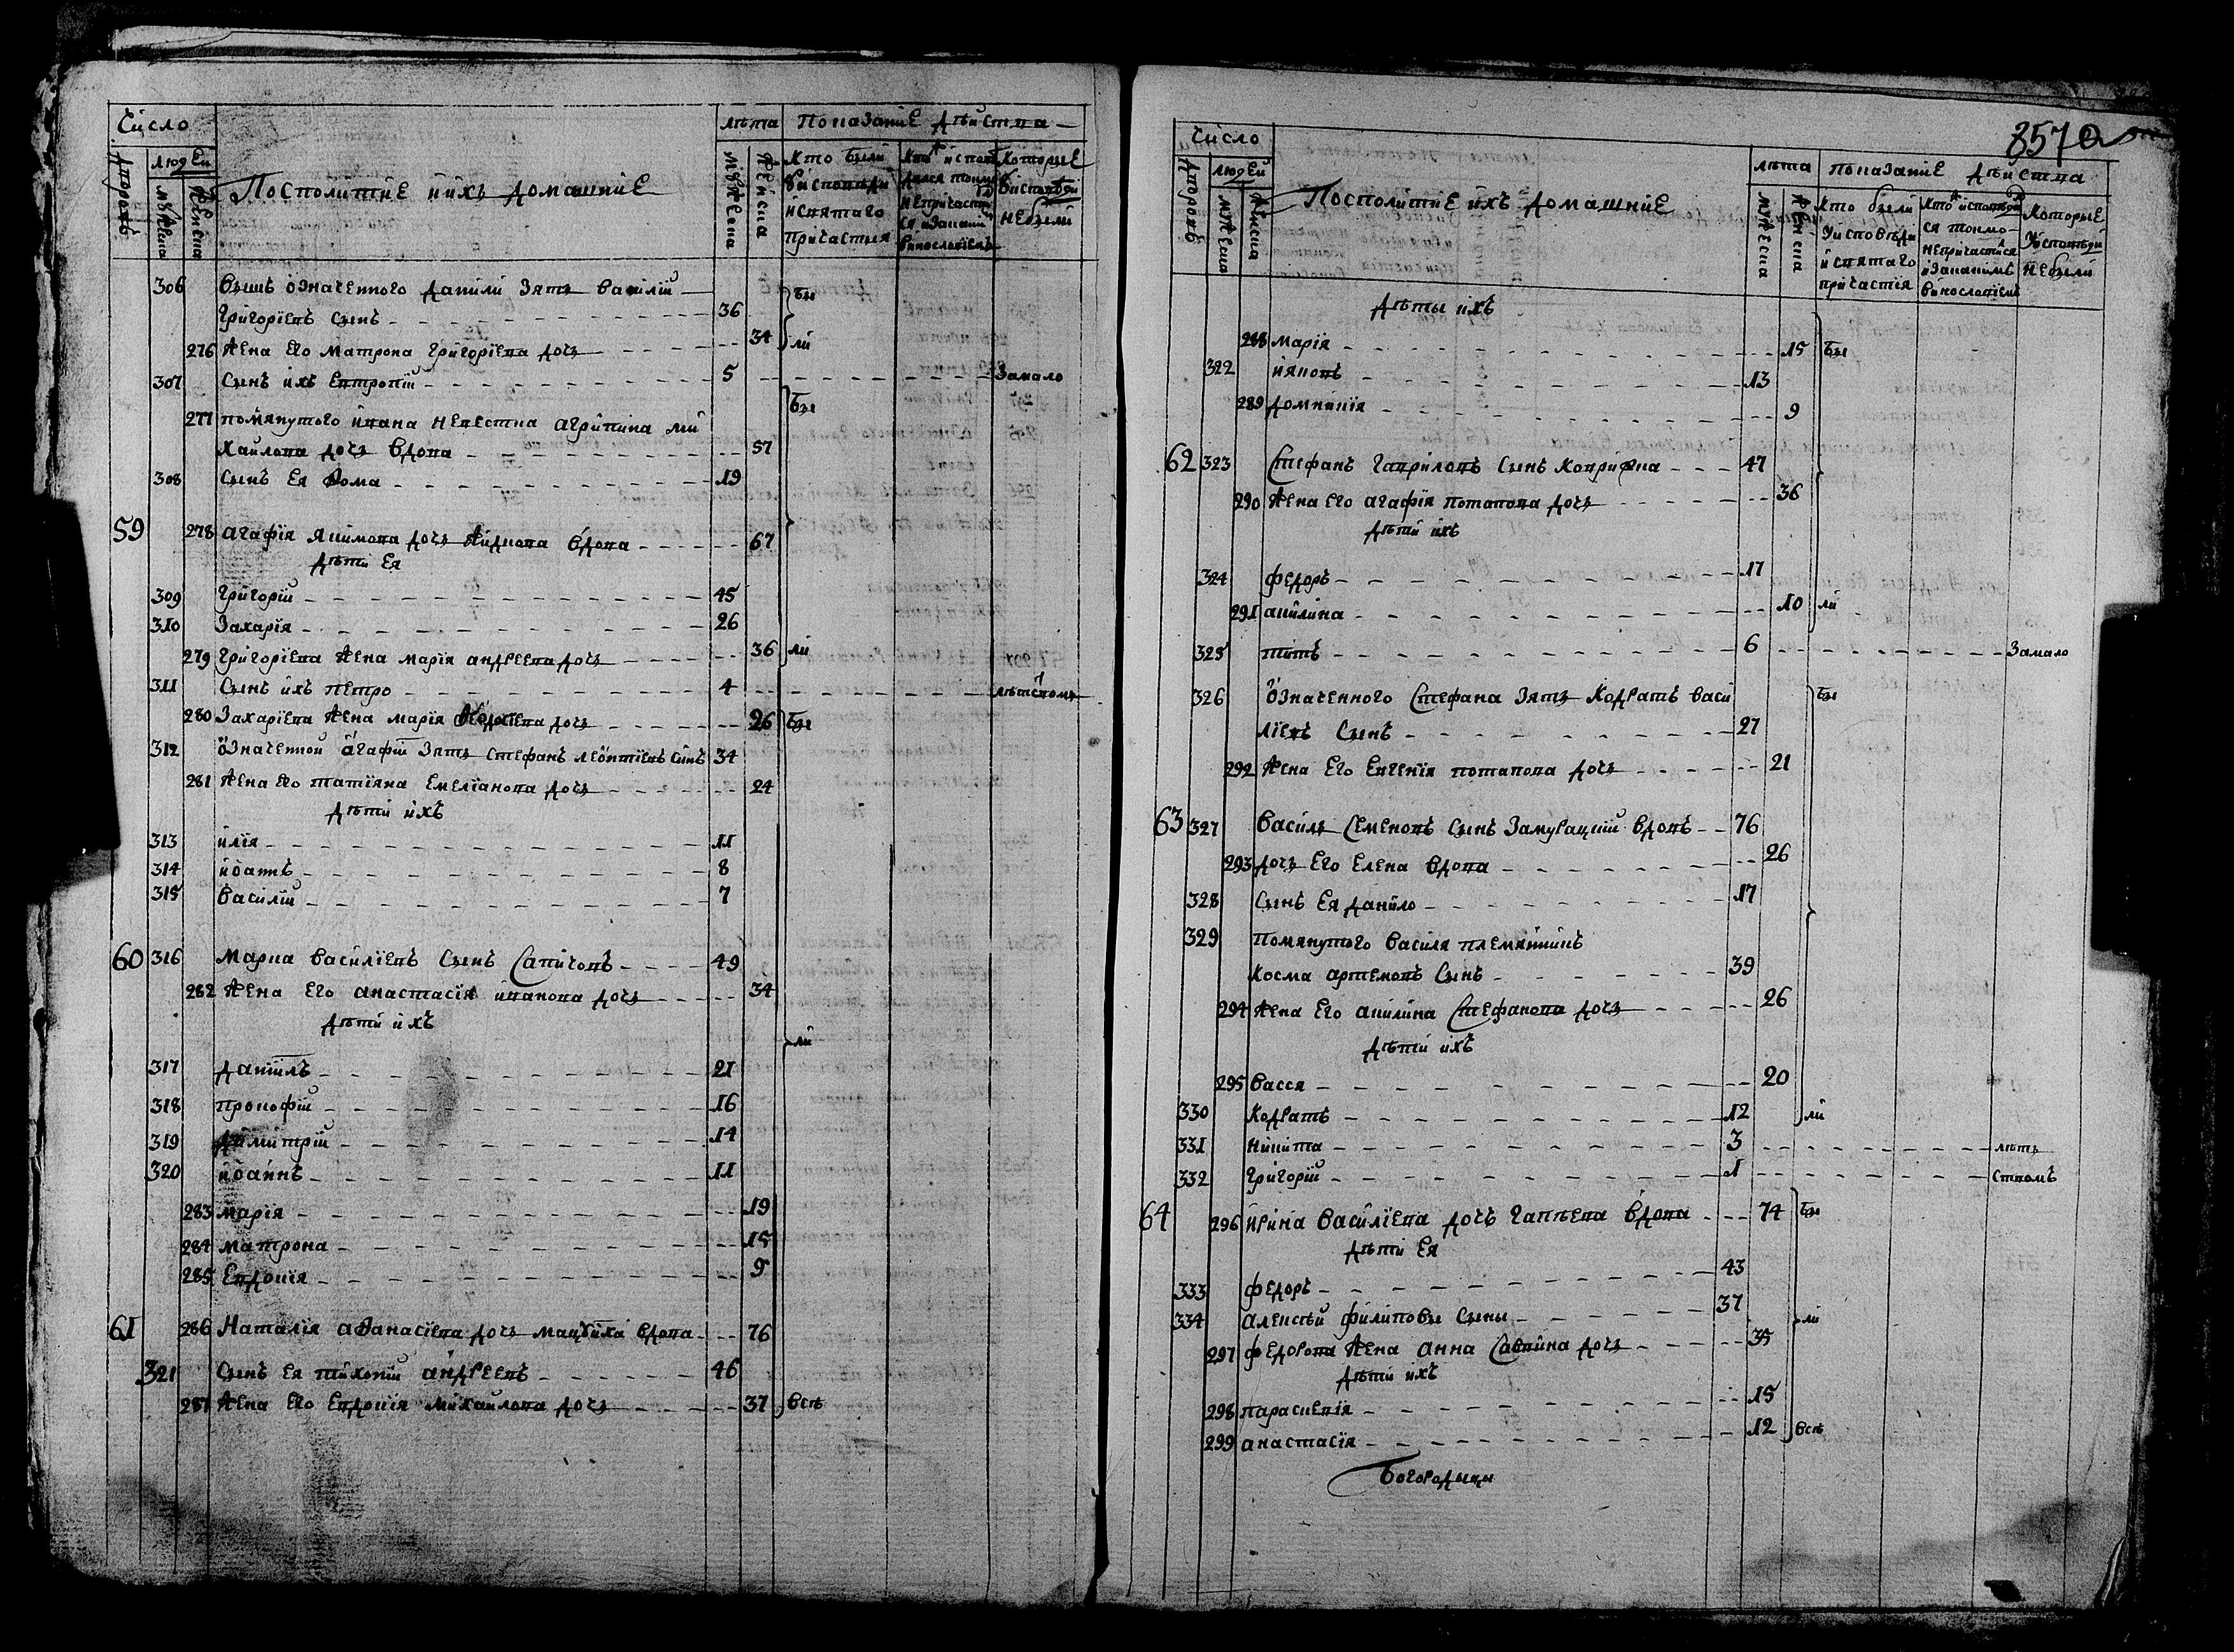 Число
людей
лѣта Показание действа
дворовъ
мужеска
женска
Посполитие и ихъ домашние
мужеска
женска
Кто были
у исповеди
и святаго
причастия
Которые
у исповеди
не были
306 Вышъ означенного Данили зять Василий
Григориевъ сынъ 36 бы
276 Жена его Матрона Григориева дочь 34 ли
307 Сынъ ихъ Евтропий 5 Замало
277 помянутого Ивана невестка Агрипина Ми
хайлова дочь вдова 57 бы
308 Сынъ ея Ѳома 19
59 278 Агафия Якимова дочь вдова 67
Дѣти ея
309 Григорий 45
310 Захария 26
279 Григориева жена Мария Андреева дочь 36 ли
311 Сынъ ихъ Петро 4 лѣтством
280 Захариева жена Мария дочь 26 бы
312 Означенной Агафии зять Стефанъ Леонтиевъ синъ 34
281 Жена его Татияна Емелианова дочь 24
Дѣти ихъ
313 Илия 11
314 Иоаннъ 8
315 Василий 7
60 316 Марка Василиевъ сынъ Савичовъ 49
282 Жена его Анастасия Иванова дочь 34
Дѣти ихъ
ли
317 Даниилъ 21
318 Прокофий 16
319 Димитрий 14
320 Иоаннъ 11
283 Мария 19
284 Матрона 15
285 Евдокия 9
61 286 Наталия Аѳанасиева дочь Мацуиха вдова 76
321 Сынъ ея Тихоний Андреевъ 46
287 Жена его Евдокия Михайлова дочь 37 всѣ
357
Число
людей
лѣта показание действа
дворовъ
мужеска
женска
Посполитие ихъ домашние
мужеска
женска
Кто были
у исповѣди
и святаго
причастия
Которые
у исповѣди
не были
Дѣты ихъ
288 Мария 15 бы
322 Ияковъ 13
289 Домникия 9
62 323 Стефанъ Гавриловъ сынъ Коврижка 47
290 Жена его Агафия Потапова дочь 36
Дѣти ихъ
324 Федоръ 17
291 Акилина 10 ли
325 Титъ 6 Замало
326 Означенного Стефана зять Кодратъ Васи бы
лиевъ сынъ 27
292 Жена его Евгения Потапова дочь 21
63 327 Василь Семеновъ сынъ Замурацкий вдовъ 76
293 дочь его Елена вдова 26
328 Сынъ ея Данило 17
329 Помянутого Василя племянникъ
Косма Артемовъ сынъ 39
294 Жена его Акилина Стефанова дочь 26
Дѣти ихъ
295 Васся 20
330 Кодратъ 12 ли
331 Никита 3 лѣть
332 Григорий 1 ством
64 296 Ирина Василиева дочъ Гапѣева вдова 74 бы
Дѣти ея
333 Федоръ 43
334 Алексѣй Филиповы сыны 37 ли
297 Федорова жена Анна Саввина дочь 35
Дѣти ихъ
298 Парасиевия 15
299 Анастасия 12 всѣ
Богородицы